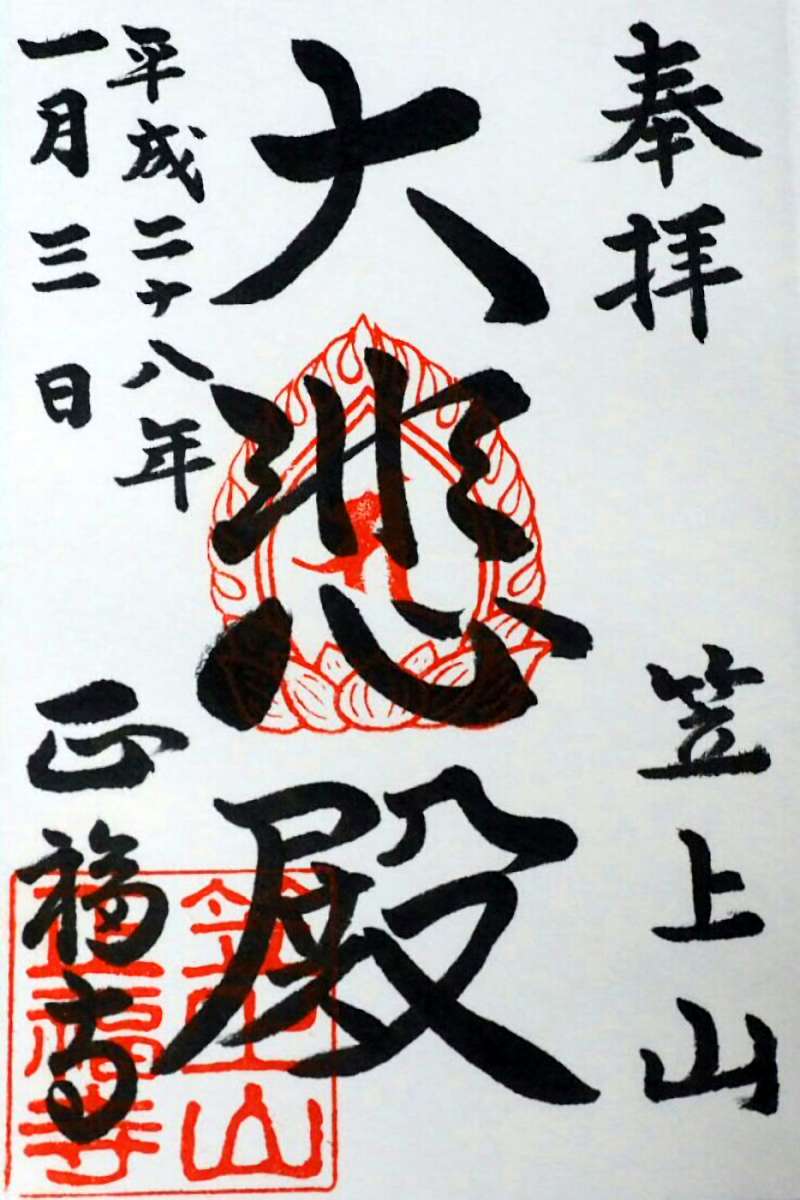 奉拝
笠上山
大悲殿
平成二十八年
一月三日
正福寺
笠上山
正福寺